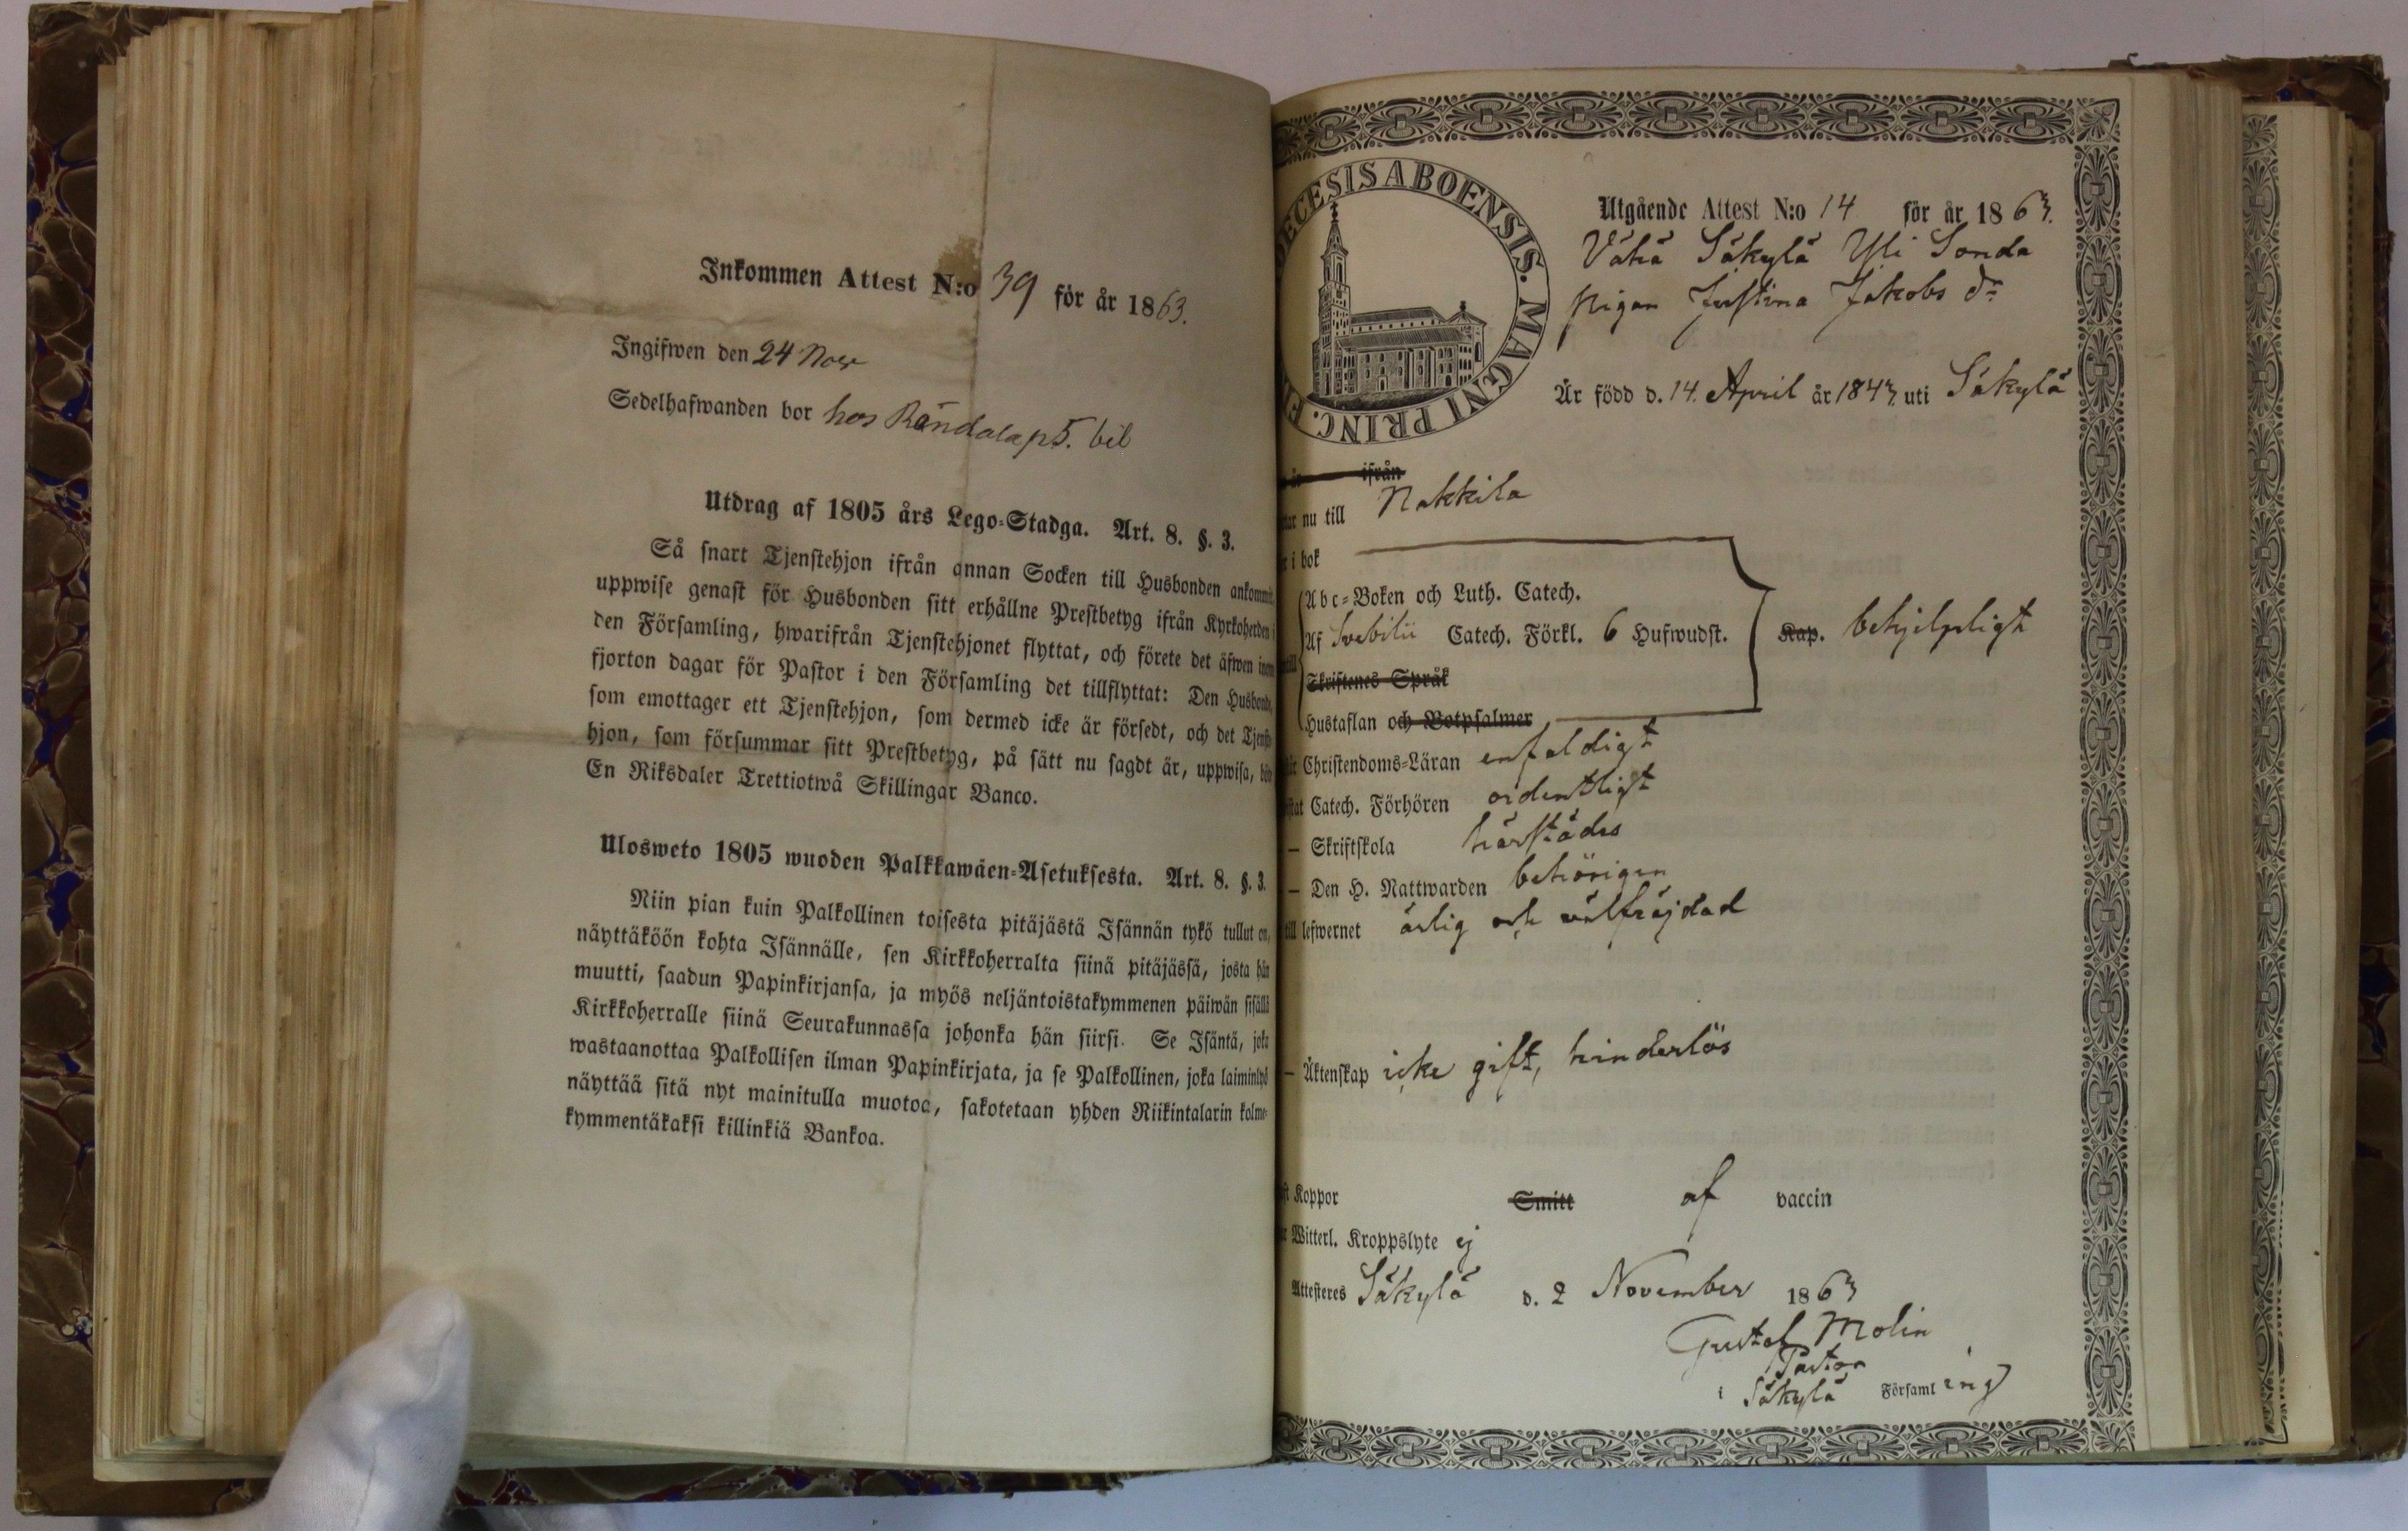 Inkommen Attest N:o 39 för år 1863.
Ingifwen den 24 Nov
Sedelhafwanden bor hos p5. bil
Utdrag af 1805 års Lego-Stadga. Art. 8. §. 3.
Så snart Tjenstehjon ifrån annan Socken till Husbonden ankommit,
uppwise genast för Husbonden sitt erhållne Prestbetyg ifrån Kyrkoherden i
den Församling, hwarifrån Tjenstehjonet flyttat, och förete det äfwen inom
fjorton dagar för Pastor i den Församling det tillflyttat: Den Husbonde,
som emottager ett Tjenstehjon, som dermed icke är försedt, och det Tjenste-
hjon, som försummar sitt Prestbetyg, på sätt nu sagdt är, uppwisa, böte
En Riksdaler Trettiotwå Skillingar Banco.
Ulosweto 1805 wuoden Palkkawäen-Asetuksesta. Art. 8. §. 3.
Niin pian kuin Palkollinen toisesta pitäjästä Isännän tykö tullut on,
näyttäköön kohta Isännälle, sen Kirkkoherralta siinä pitäjässä, josta hän
muutti, saadun Papinkirjansa, ja myös neljäntoistakymmenen päiwän sisällä
Kirkkoherralle siinä Seurakunnassa johonka hän siirsi. Se Isäntä, joka
wastaanottaa Palkollisen ilman Papinkirjata, ja se Palkollinen, joka laiminlyö
näyttää sitä nyt mainitulla muotoa, sakotetaan yhden Riikintalarin kolme-
kymmentäkaksi killinkiä Bankoa.
DECESIS ABOENSIS. MAGNI PRINC. F
Utgående Attest N:o 14 för år 1863.
Vähä Säkylä Yli Sonda
pigan Justina Jakobs dr
Är född d. 14. April år 1843 uti Säkylä
ifrån
nu till Nakkila
i bok
Abc-Boken och Luth. Catech.
Af Svebilii Catech. Förkl. 6 Hufwudst. Kap. behjelpligt
Skriftenes Språk
Hustaflan och Botpsalmer
Christendoms-Läran enfaldigt
Catech. Förhören ordentligt
— Skriftskola härstädes
— Den H. Nattwarden behörigen
till lefwernet ärlig och välfräjdad
— Äktenskap icke gift, hinderlös
Koppor Smitt af vaccin
Witterl. Kroppslyte ej
Attesteres Säkylä d. 2 November 1863
Gustaf Molin
Pastor
i Säkylä Församling